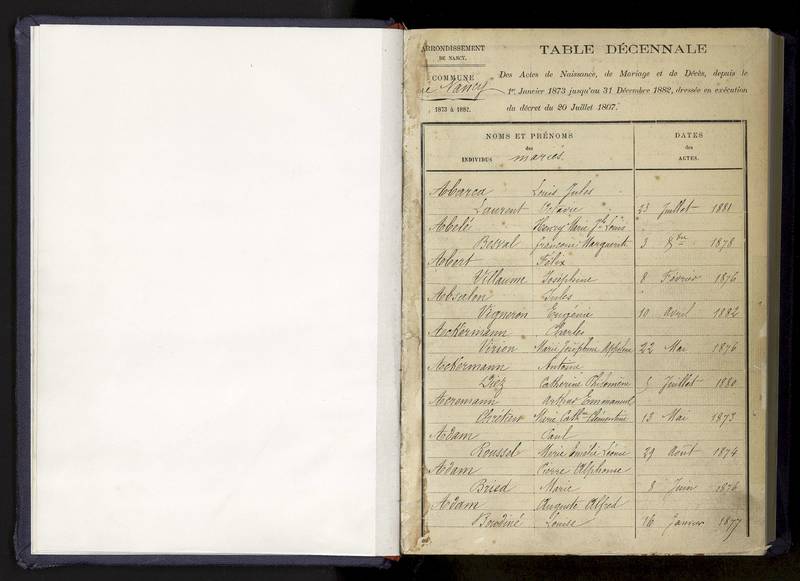 ARRONDISSEMENT
DE NANCY.
COMMUNE
de Nancy
1873 à 1882.
TABLE DÉCENNALE
Des Actes de Naissance, de Mariage et de Décès, depuis le
1er Janvier 1873 jusqu'au 31 Décembre 1882, dressée en exécution
du décret du 20 Juillet 1807.
NOMS ET PRÉNOMS
des
INDIVIDUS mariés.
DATES
des
ACTES.
Abarca Louis Jules
Laurent Octavie 23 Juillet 1881
Abelé Henry Marie Jh Louis
Besval françoise Marguerite 3 8bre 1878
Abert Félix
Villaume Joséphine 8 Février 1876
Absalon Jules
Vigneron Eugénie 10 Avril 1882
Ackermann Charles
Virion Marie Joséphine 22 Mai 1876
Ackermann Antoine
Diez Catherine Philomène 5 Juillet 1880
Acremann Arthur Emmanuel
Chretien Marie Cathne Clémentine 13 Mai 1873
Adam Paul
Roussel Marie Amélie Léonie 29 Août 1874
Adam Pierre Alphonse
Bried Marie 8 Juin 1876
Adam Auguste Alfred
Bourdiné Louise 16 Janvier 1877